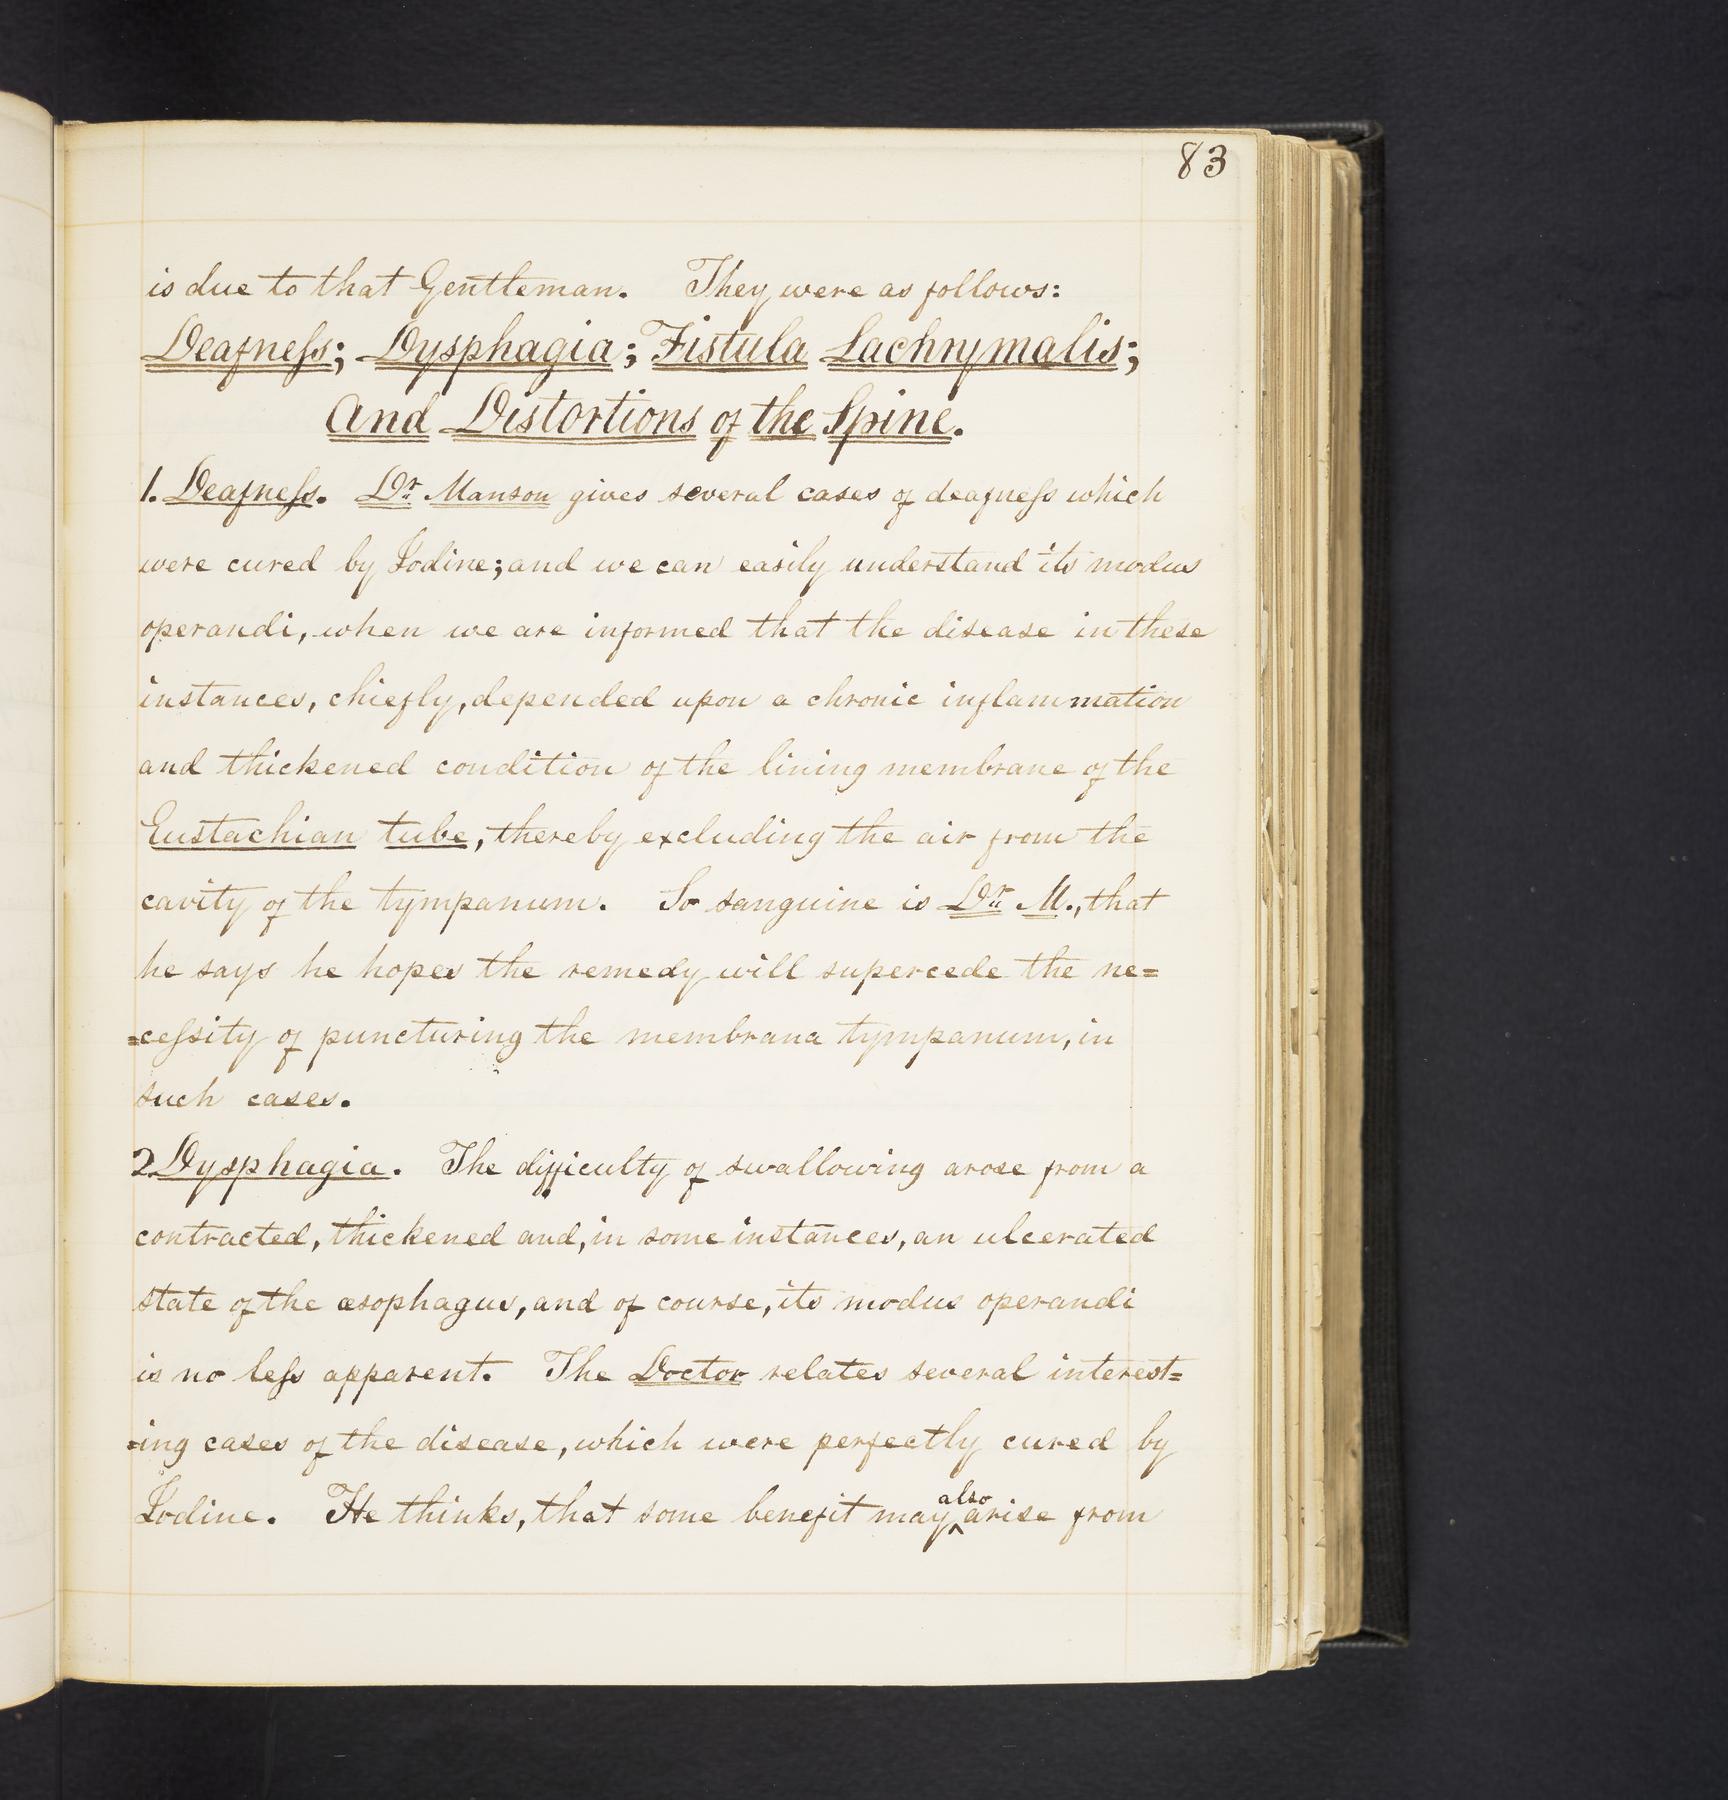 83
is due to that Gentleman. They were as follows:
Deafneſs; Dysphagia; Fistula Lachrymalis;
And Distortions of the Spine.
1. Deafneſs. Dr. Manson gives several cases of deafneſs which
were cured by Iodine; and we can easily understand its modus
operandi, when we are informed that the disease in these
instances, chiefly, depended upon a chronic inflammation
and thickened condition of the lining membrane of the
Eustachian tube, thereby excluding the air from the
cavity of the tympanum. So sanguine is Dr. M., that
he says he hopes the remedy will supercede the ne=
=ceſsity of puncturing the membrana tympanum, in
such cases.
2. Dysphagia. The difficulty of swallowing arose from a
contracted, thickened and, in some instances, an ulcerated
state of the œsophagus, and of course, its modus operandi
is no leſs apparent. The Doctor relates several interest=
=ing cases of the disease, which were perfectly cured by
Iodine. He thinks, that some benefit may ^also arise from